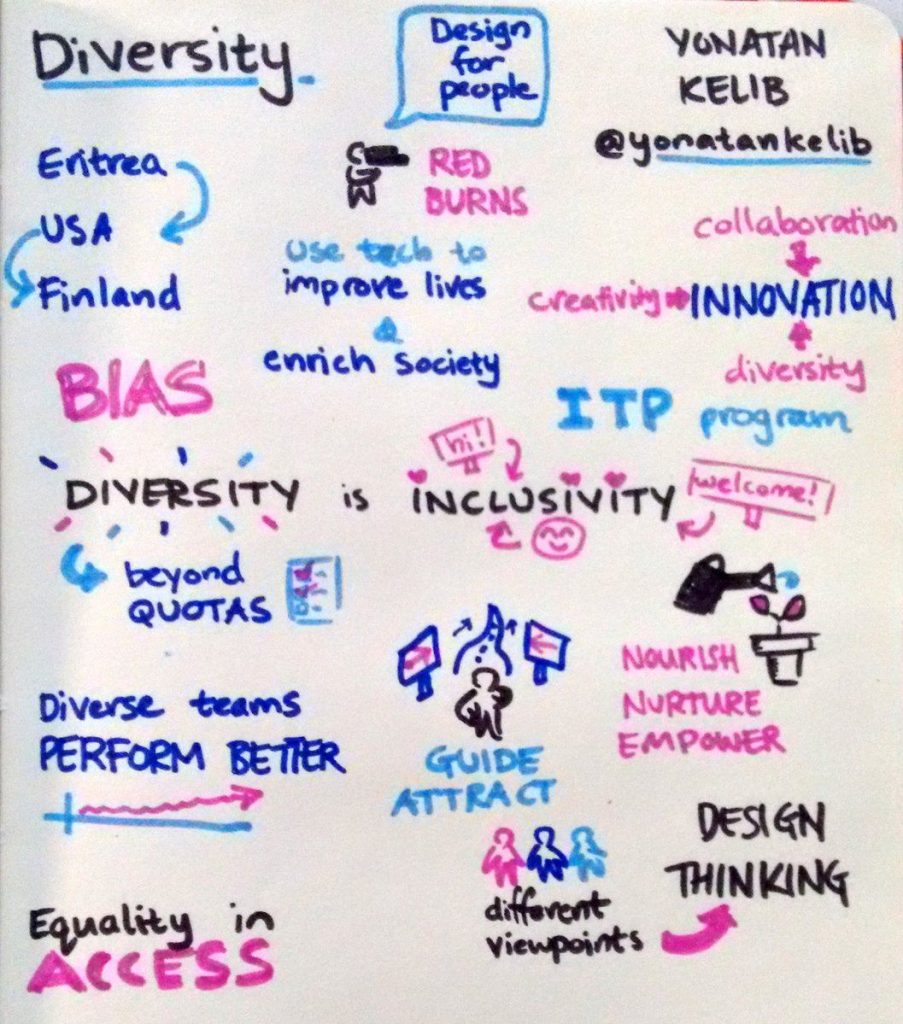 Diversity
Design
for
people
YONATAN
KELIB
@yonatankelib
Eritrea
USA
Finland
RED
BURNS
use tech to
improve lives
&
enrich society
collaboration
creativity
INNOVATION
diversity
BIAS
ITP program
hi!
DIVERSITY is INCLUSIVITY
welcome!
beyond
QUOTAS
NOURISH
NURTURE
EMPOWER
Diverse teams
PERFORM BETTER
GUIDE
ATTRACT
DESIGN
THINKING
different
viewpoints
Equality in
ACCESS